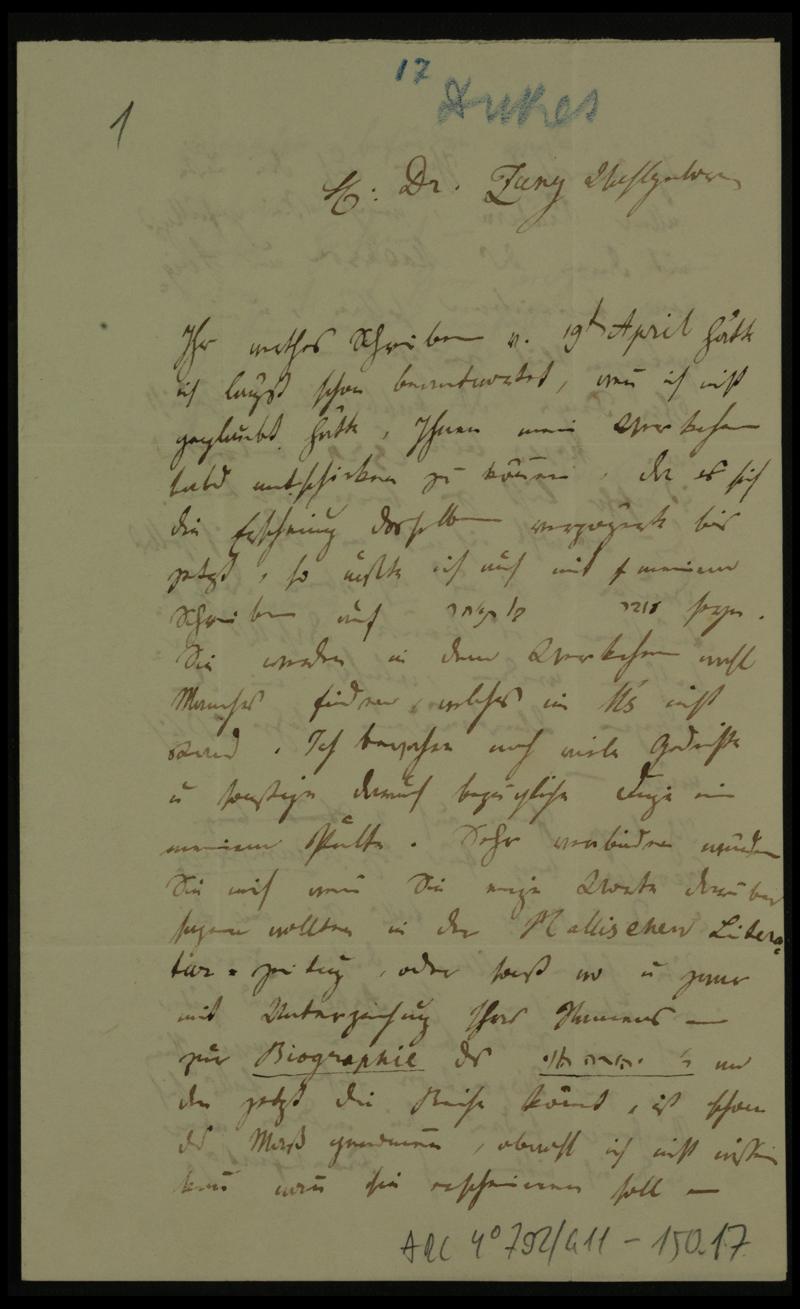 17
Dukes
1
H: Dr. Zunz Wohlgeboren
Ihr werthes Schreiben v. 19t April hätte
ich längst schon beantwortet, wenn ich nicht
geglaubt hätte, Ihnen mein Werkchen
bald mitschicken zu können, da es sich
die Erscheinung desselben verzögerte bis
jetzt, so mußte ich auch mit meinem
Schreiben auf
Sie werden in dem Werkchen wohl
Manches finden, welches im Ms nicht
stand. Ich besitze noch viele Gedichte
u sonstige darauf bezügliche Dinge in
meinem Pulte. Sehr verbinden würden
Sie mich wenn Sie einige Worte darüber
sagen wollten in der Hallischen Litera-
tur-zeitung, oder sonst wo u zwar
mit Unterzeichnung Ihres Namens —
zur Biographie des an
den jetzt die Reihe kömmt, ist schon
das Maß genommen, obwohl ich nicht wissen
kann wann sie erscheinen soll —
ARC 4° 792/G11 - 150.17